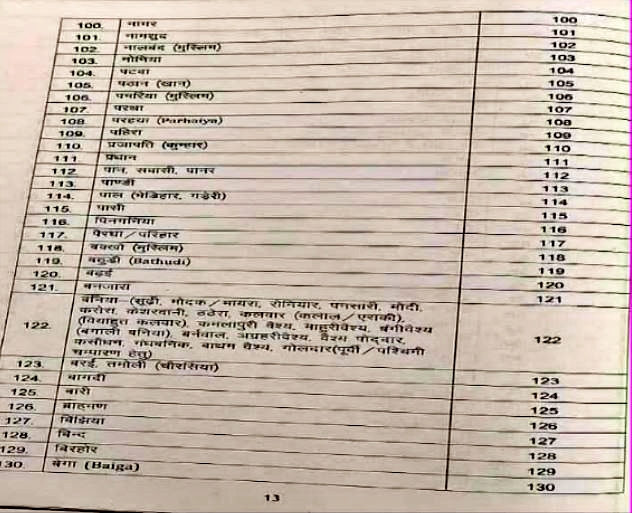 100. नागर 100
101. नामशुद्र 101
102. नालबंद (मुस्लिम) 102
103. नोनिया 103
104. पटवा 104
105. पठान (खान) 105
106. पमरिया (मुस्लिम) 106
107. परथा 107
108. परहया (Parhaiya) 108
109. पहिरा 109
110. प्रजापति (कुम्हार) 110
111. प्रधान 111
112. पान, सवासी, पानर 112
113. पाण्डी 113
114. पाल (भेड़िहार, गड़ेरी) 114
115. पासी 115
116. पिनगनिया 116
117. पेरधा/परिहार 117
118. बक्खो (मुस्लिम) 118
119. बठुडी (Bathudi) 119
120. बढ़ई 120
121. बनजारा 121
बनिया-(सूढ़ी, मोदक/मायरा, रोनियार, पनसारी, मोदी,
कसेरा, केशरवानी, ठठेरा, कलवार (कलाल/एराकी),
(वियाहुत कलवार), कमलापुरी वैश्य, माहुरीवैश्य, बंगीवैश्य
122. (बंगाली बनिया), बर्नवाल, अग्रहरीवैश्य, वैश्य पोद्दार, 122
कसौधन, गंधबनिक, बाथम वैश्य, गोलदार(पूर्वी/पश्चिमी
चम्पारण हेतु)
123. बरई, तमोली (चौरसिया) 123
124. बागदी 124
125. बारी 125
126. ब्राह्मण 126
127. बिंझिया 127
128. बिन्द 128
129. बिरहोर 129
130. बेगा (Baiga) 130
13